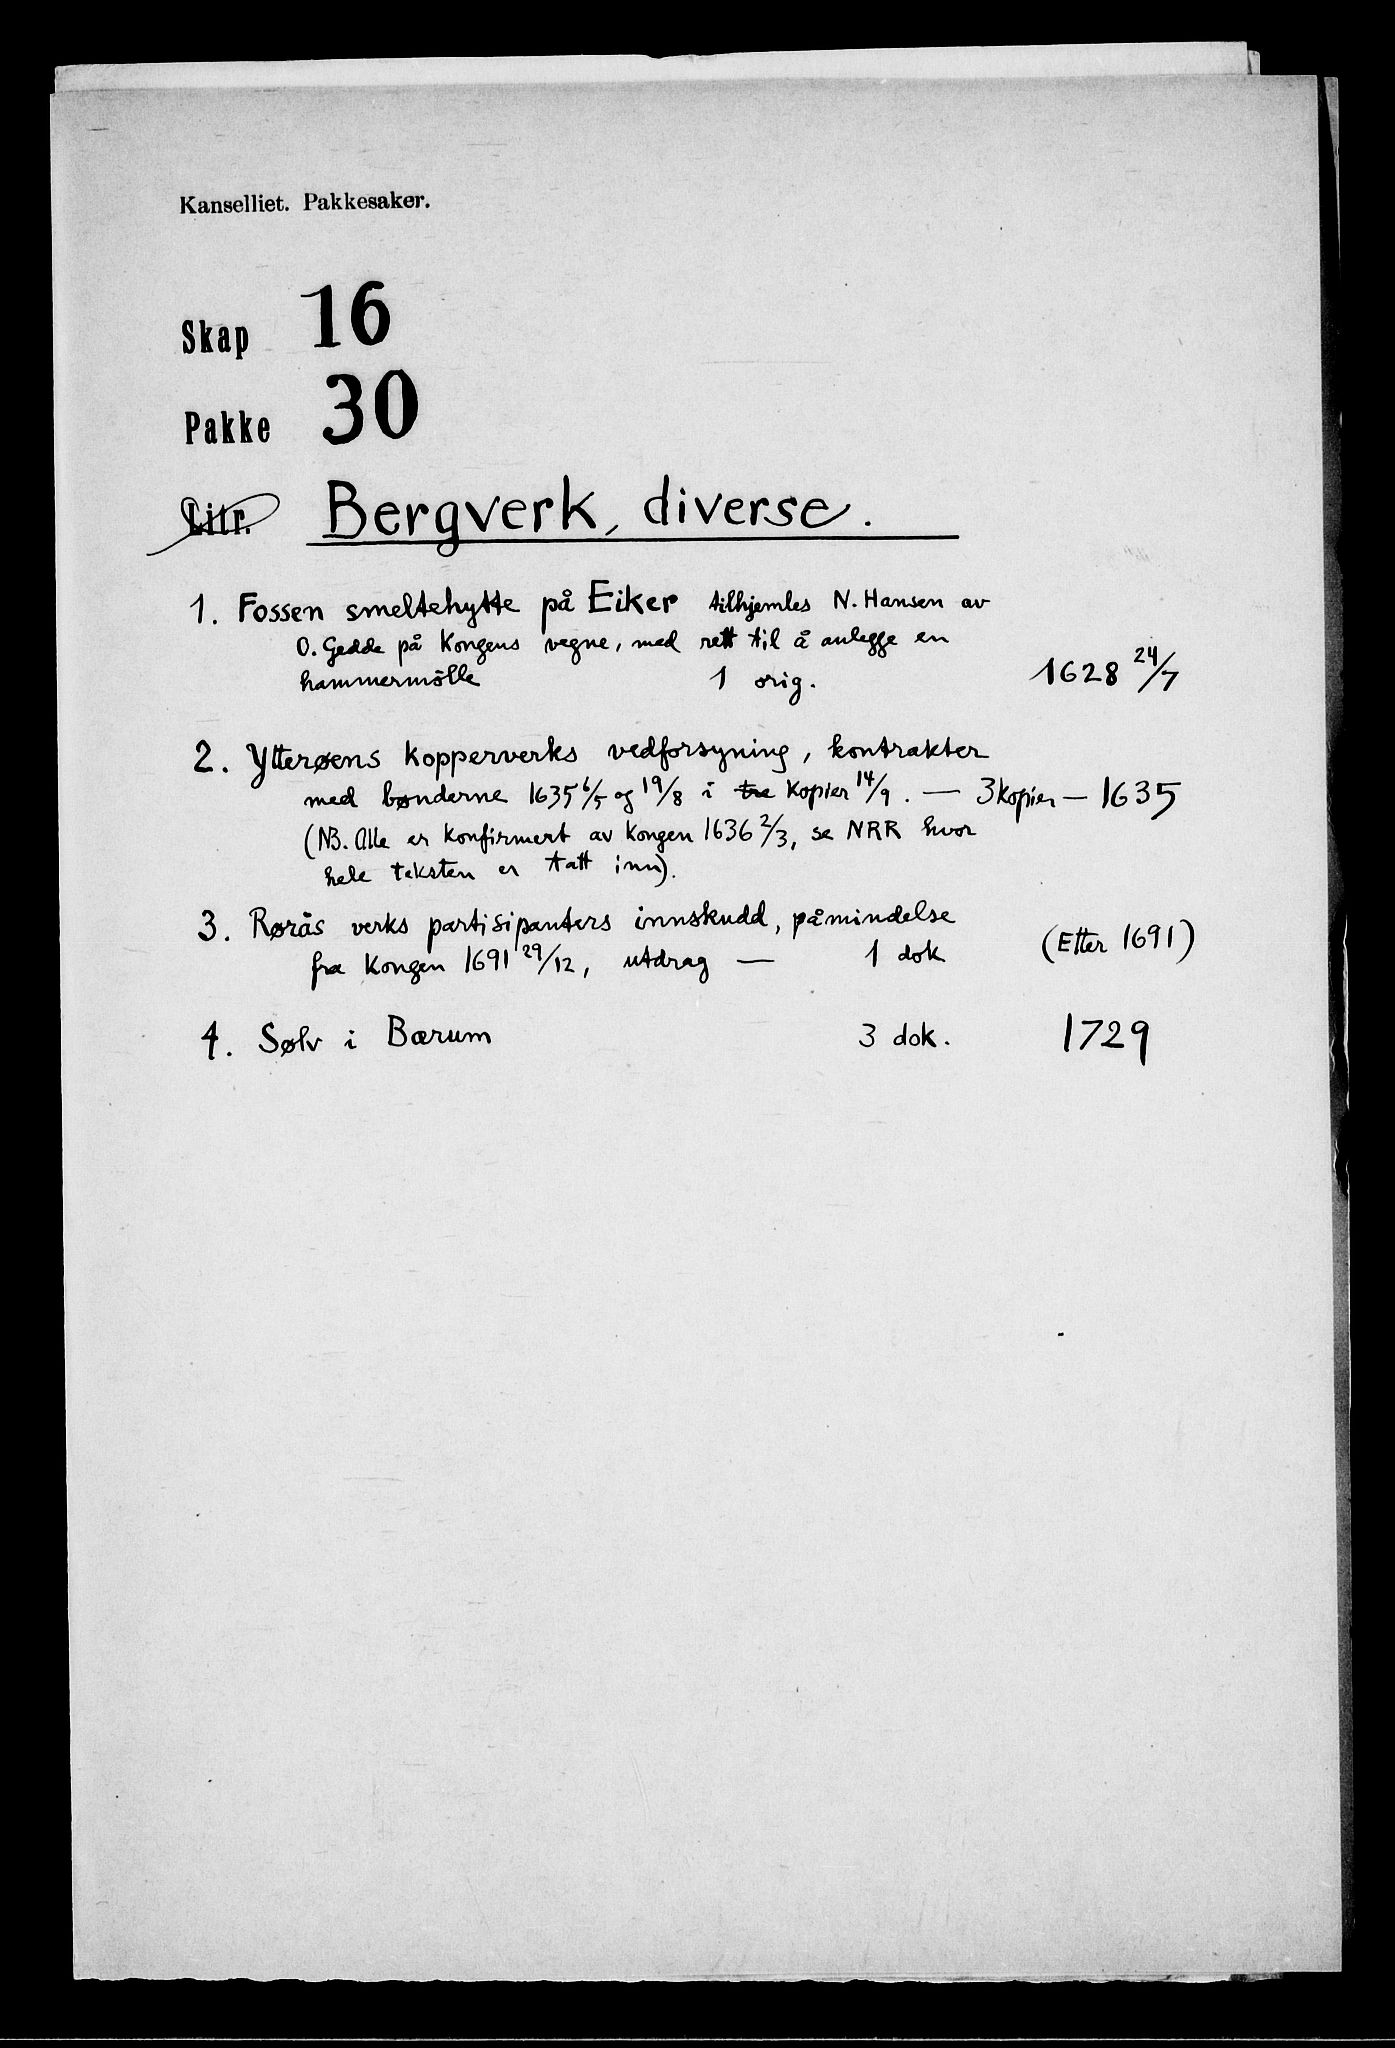 Kanselliet. Pakkesaker.
Skap 16
Pakke 30
Litr. Bergverk, diverse.
1. Fossen smeltehytte på Eiker tilhjemles N. Hansen av
O. Gedde på Kongens vegne, med rett til å anlegge en
hammermölle 1 orig. 1628 24/7
2. Ytterøens kopperverks vedforsyning, kontrakter
med bønderne 1635 6/5 og 19/8 i tre kopier 14/9. — 3 kopier — 1635
(NB. Alle er konfirmert av kongen 1636 2/3, se NRR hvor
hele teksten er tatt inn).
3. Rørås verks partisipanters innskudd, påmindelse
fra Kongen 1691 29/12, utdrag — 1 dok (Etter 1691)
4. Sølv i Bærum 3 dok. 1729